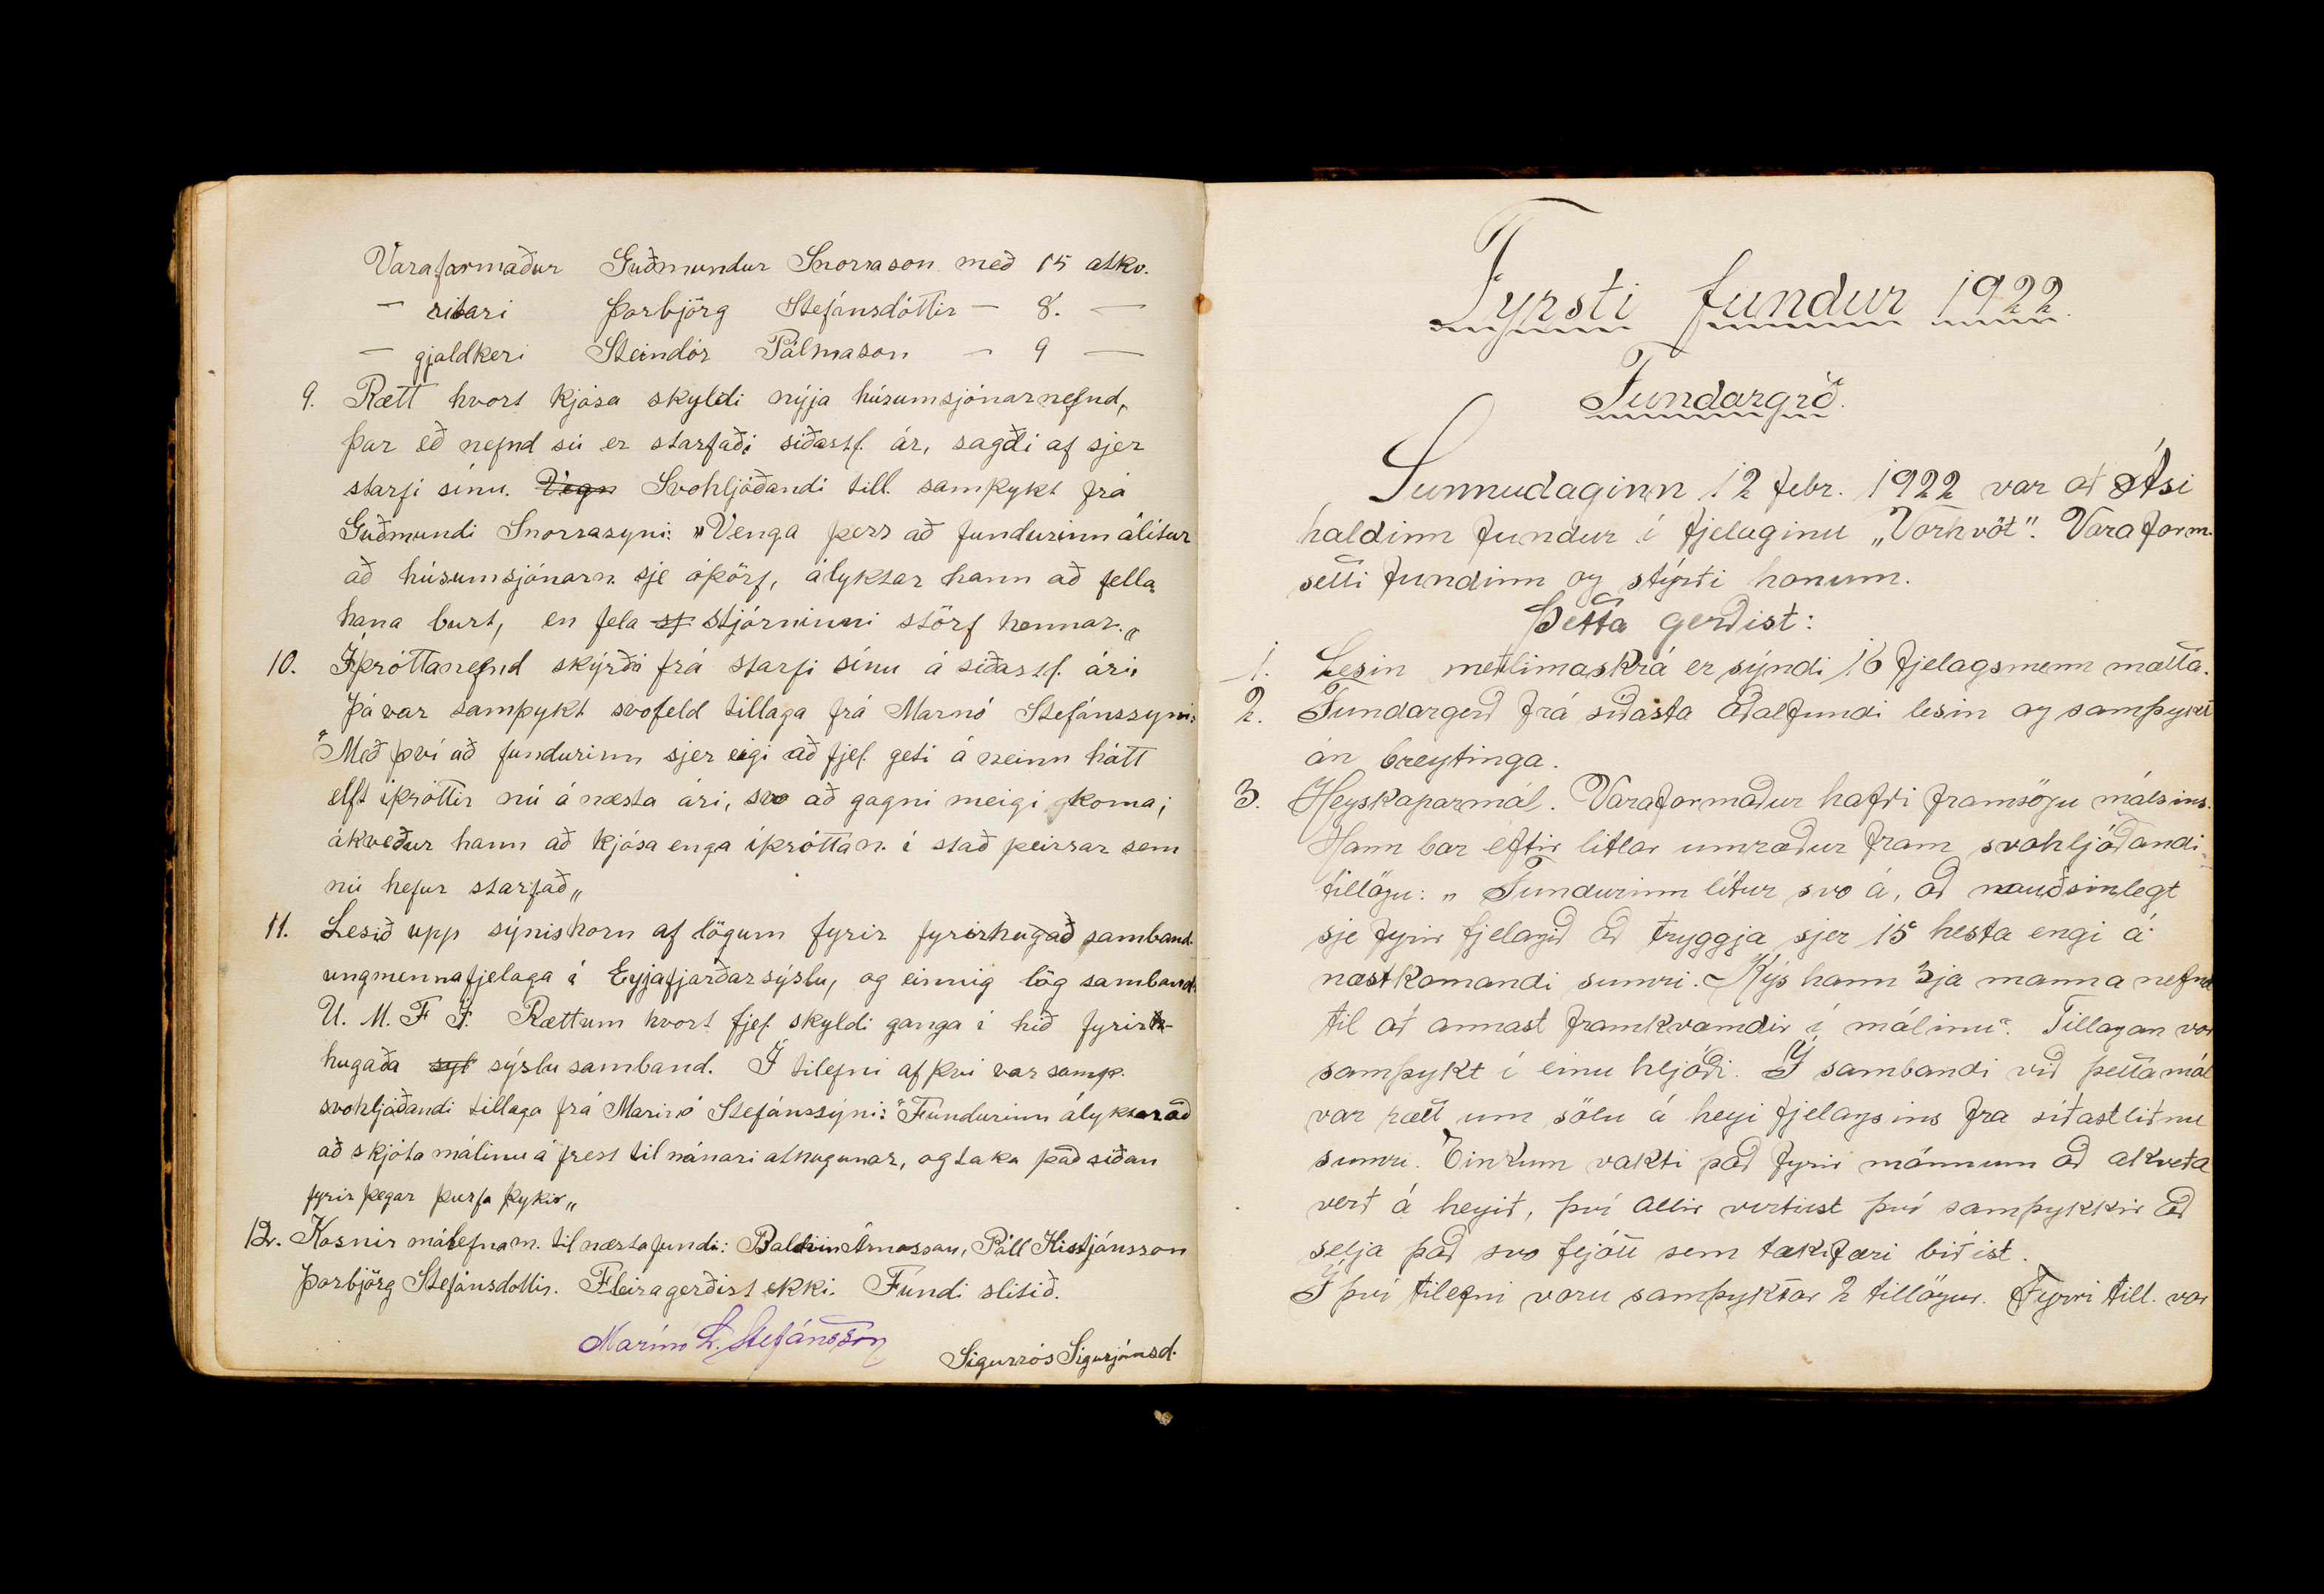 Varaformaður Guðmundur Snorrason með 15 atkv.
— ritari Þorbjörg Stefánsdóttir — 8. —
— gjaldkeri Steindór Pálmason — 9 —
9. Rætt hvort kjósa skyldi nýja húsumsjónarnefnd,
þar eð nefnd sú er starfaði síðastl. ár, sagði af sjer
starfi sínu. Vegn Svohljóðandi till. samþykt frá
Guðmundi Snorrasyni: „Venga þess að fundurinn álitur
að húsumsjónarn. sje óþörf, ályktar hann að fella
hana burt, en fela st stjórninni störf hennar.„
10. Íþróttanefnd skýrði frá starfi sínu á síðastl. ári.
Þá var samþykt svofeld tillaga frá Marnó Stefánssyni:
"Með því að fundurinn sjer eigi að fjel. geti á neinn hátt
elft íþróttir nú á næsta ári, svo að gagni meigi koma;
ákveður hann að kjósa enga íþróttan. í stað þeirrar sem
nú hefur starfað„
11. Lesið upp sýnishorn af lögum fyrir fyrirhugað samband.
ungmennafjelaga í Eyjafjarðarsýslu, og einnig lög samband.
U. M. F Í. Rættum hvort fjel. skyldi ganga í hið fyrir-
hugaða syl sýslusamband. Í tilefni af því var samþ.
svohljóðandi tillaga frá Marinó Stefánssýni: "Fundurinn ályktar að
að skjóta málinu á frest til nánari athugunar, og taka það síðan
fyrir þegar þurfa þykir„
12. Kosnir málefnam. til næsta fundi: Baldvin Árnasson, Páll Kistjánsson
Þorbjörg Stefánsdottir. Fleira gerðist ekki. Fundi slitið.
Marinó L. Stefánsson
Sigurrós Sigurjónsd.
Fyrsti fundur 1922.
Fundargrð.
Sunnudaginn 12 febr. 1922 var að Ási
haldinn fundur í fjelaginu „Vorhvöt". Varaform.
setti fundinn og stýrði honum.
Þetta gerðist:
1. Lesin meðlimaskrá er sýndi 16 fjelagsmenn mætta.
2. Fundargerð frá síðasta aðalfundi lesin og samþykt
án breytinga.
3. Heyskaparmál. Varaformaður hafði framsögu málsins.
Hann bar eftir litlar umræður fram svohljóðandi
tillögu: „Fundurinn lítur svo á, að nauðsinlegt
sje fyrir fjelagið að tryggja sjer 15 hesta engi á
næstkomandi sumri. Kýs hann 3ja manna nefnd
til að annast framkvæmdir í málinu". Tillagan var
samþykt í einu hljóði. Í sambandi við þetta mál
var rætt um sölu á heyi fjelagsins fra síðastliðnu
sumri. Einkum vakti það fyrir mönnum að akveða
verð á heyið, því allir virtust því samþykkir að
selja það svo fejótt sem tækifæri biðist.
Í því tilefni voru samþyktar 2 tillögur. Fyrri till. var